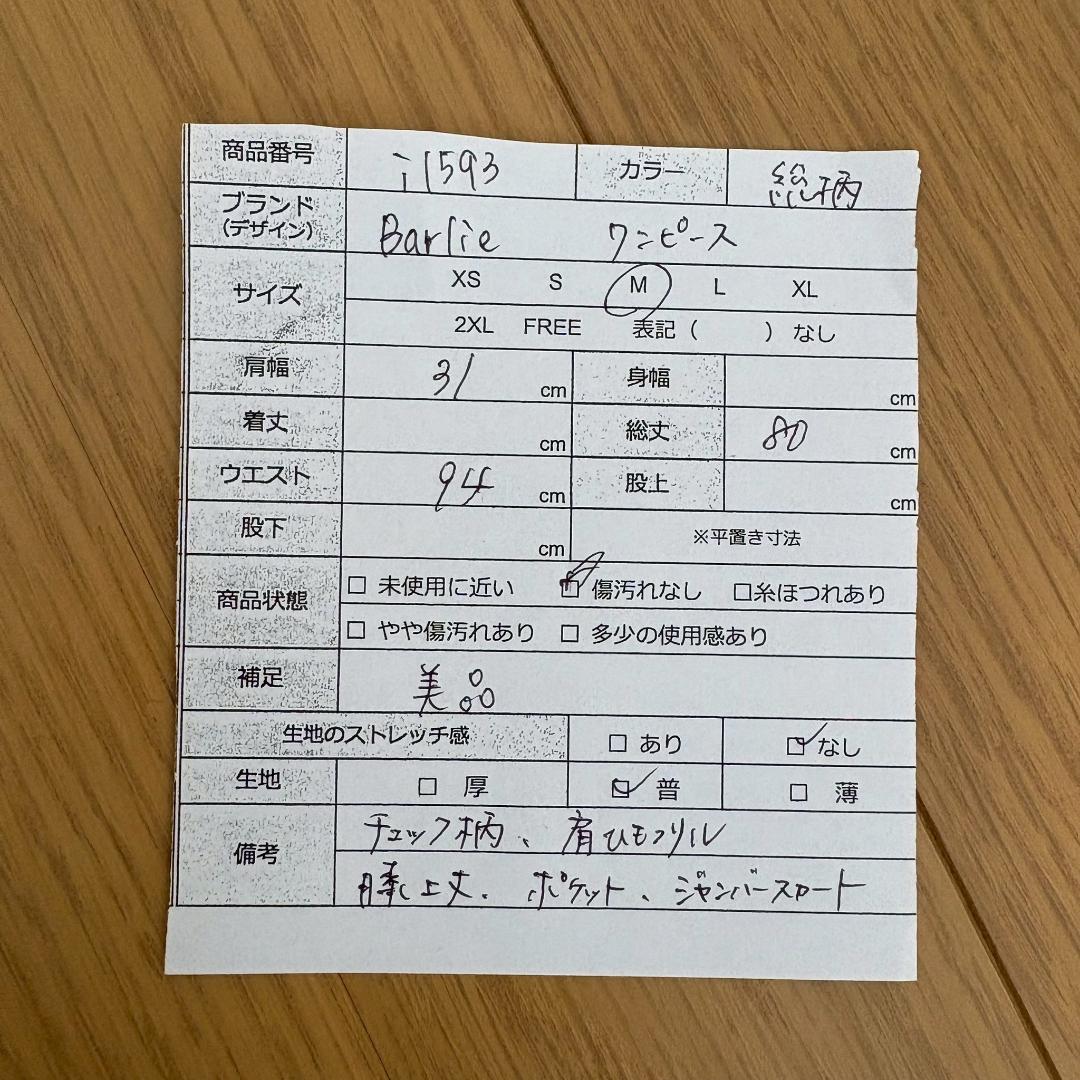 商品番号 i1593 カラー 総柄
ブランド Barlie ワンピース
(デザイン)
サイズ XS S M L XL
2XL FREE 表記( ) なし
肩幅 31 cm 身幅 cm
着丈 cm 総丈 80 cm
ウエスト 94 cm 股上 cm
股下 cm ※平置き寸法
商品状態 □ 未使用に近い ☑ 傷汚れなし □糸ほつれあり
□ やや傷汚れあり □ 多少の使用感あり
補足 美品
生地のストレッチ感 □ あり ☑ なし
生地 □ 厚 ☑ 普 □ 薄
備考 チェック柄、肩ひもフリル
膝上丈、ポケット、ジャンバースカート